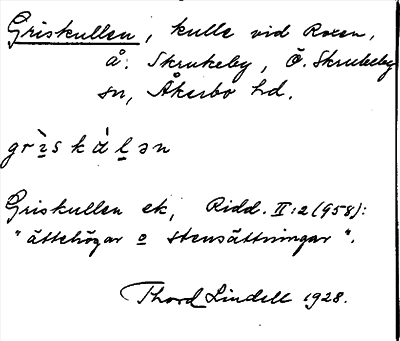 Griskullen, kulle vid Roxen,
å. Skrukeby, Ö. Skrukeby
sn, Åkerbo hd.
Griskullen ek, Ridd. II:2 (958):
"ättehögar o stensättningar".
Thord Lindell 1928.